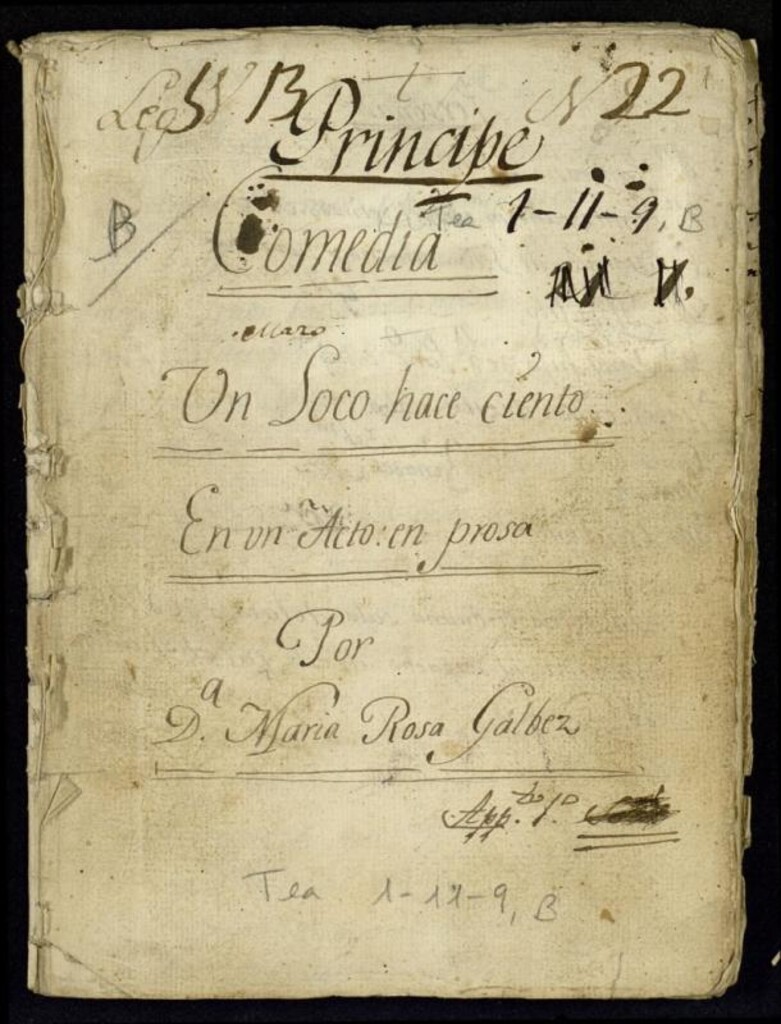 Leg B N 22
Principe
Tea 1-11-9, B
B
Comedia
Un Loco hace ciento.
En un Acto: en prosa
Por
D.ª Maria Rosa Galbez
App.to 1.º
Tea 1-11-9, B